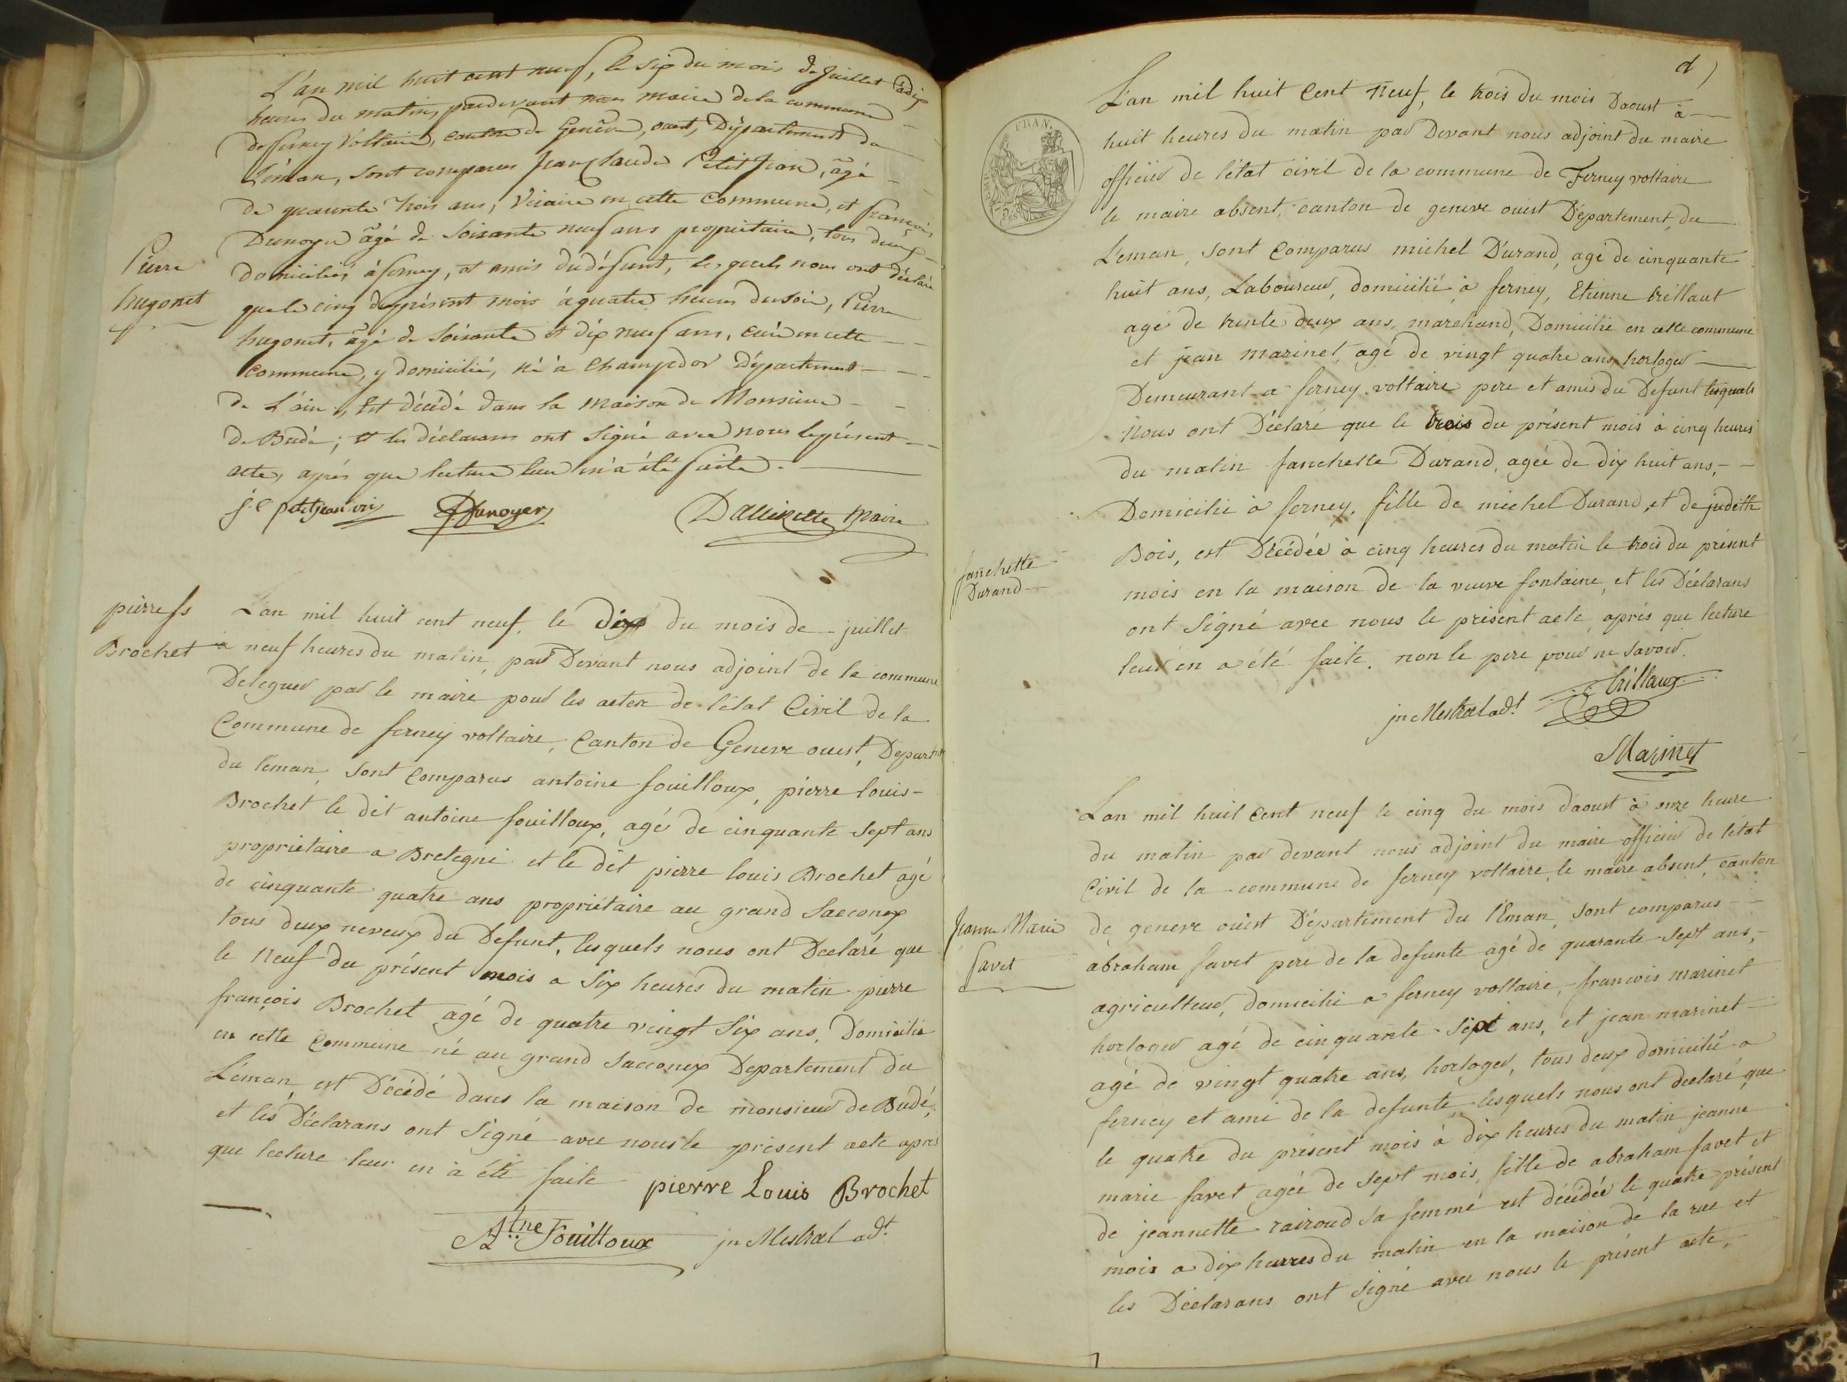 L'an mil huit cent neuf, le six du mois de juillet à dix
heures du matin, pardevant nous maire de la commune
de ferney Voltaire, canton de Genêve, ouest, Département du
Léman, sont comparus Jean Claude Petit Jean, âgé
de quarante trois ans, Vicaire en cette Commune, et françois
Dunoyer âgé de soixante neuf ans propriétaire, tous deux
domiciliés à ferney, et amis du défunt, lesquels nous ont déclaré
Pierre
hugonet
que le cinq du présent mois à quatre heures du soir, Pierre
hugonet, âgé de soixante et dix neuf ans, curé en cette
commune, y domicilié, né à Champdor Département
de L'ain, Est décédé dans la maison de Monsieur
de Budé; et les déclarans ont signé avec nous le présent
acte, après que lecture leur en a été faite.
j. C petitjean vic Dunoyer Maire
pierre fs
Brochet
L'an mil huit cent neuf, le dix du mois de juillet
à neuf heures du matin, par Devant nous adjoint de la commune
Delegué par le maire pour les actes de l'état Civil de la
Commune de ferney voltaire, Canton de Geneve ouest, Departmt
du leman, sont comparus antoine fouilloux, pierre louis
Brochet le dit antoine fouilloux, agé de cinquante sept ans
propriétaire a Bretegni et le dit pierre louis Brochet agé
de cinquante quatre ans propriétaire au grand Sacconex
tous deux neveux du Defunt, lesquels nous ont Declaré que
le Neuf du présent mois a six heures du matin pierre
françois Brochet agé de quatre vingt six ans, Domicilié
en cette Commune né au grand Sacconex Departement du
Léman, est Décédé dans la maison de monsieur de Budé,
et les Déclarans ont signé avec nous le présent acte après
que lecture leur en à été faite
pierre Louis Brochet
Atne Fouilloux jn Mestral adt
d
L'an mil huit Cent Neuf, le trois du mois Daoust à
huit heures du matin par Devant nous adjoint du maire
officier de l'état civil de la commune de Ferney voltaire
le maire absent, canton de geneve ouest Département, du
Leman, sont Comparus michel Durand, agé de cinquante
huit ans, Laboureur, domicilié à ferney, Etienne trillaut
agé de trente deux ans, marchand, Domicilié en cette commune
et jean marinet, agé de vingt quatre ans, horloger
Demeurant a ferney voltaire pere et amis du Defunt lesquels
Nous ont Déclaré que le trois du présent mois à cinq heures
du matin fanchette Durand, agée de dix huit ans,
Domicilié à ferney, fille de michel Durand, et de judith
fanchette
Durand
Bois, est Décédée à cinq heures du matin le trois du présent
mois en la maison de la veuve fontaine, et les Déclarans
ont signé avec nous le présent acte, après que lecture
leur en a été faite. non le pere pour ne savoir.
jn Mestral adt E trillaux
Marinet
L'an mil huit Cent neuf le cinq du mois daoust à onze heure
du matin par devant nous adjoint du maire officier de l'état
Civil de la commune de ferney voltaire, le maire absent, canton
Jeanne Marie
favet
de geneve ouest Département du léman, sont comparus
abraham favet pere de la defunte agé de quarante sept ans,
agriculteur, domicilié a ferney voltaire, francois marinet
horloger agé de cinquante sept ans, et jean marinet
agé de vingt quatre ans, horloger, tous deux domicilié a
ferney et ami de la defunte, lesquels nous ont declaré que
le quatre du présent mois à dix heures du matin jeanne
marie favet agée de sept mois, fille de abraham favet et
de jeannette sa femme est décédée le quatre présent
mois a dix heures du matin en la maison de la rue et
les Déclarans ont signé avec nous le présent acte,